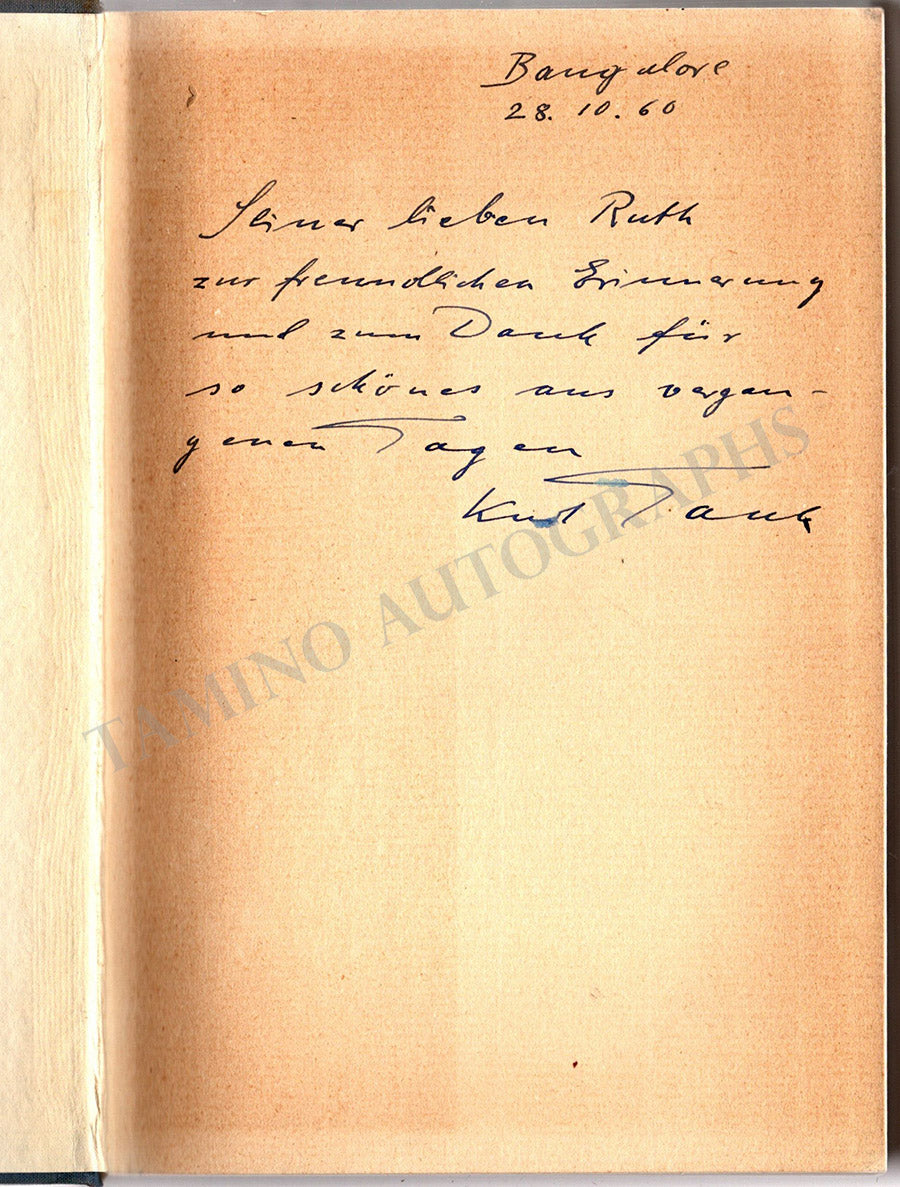 Bangalore
28. 10. 60
Seiner lieben Ruth
zur freundlichen Erinnerung
und zum Dank für
so schönes aus vergan-
genen Tagen
Kurt Tank
TAMINO AUTOGRAPHS